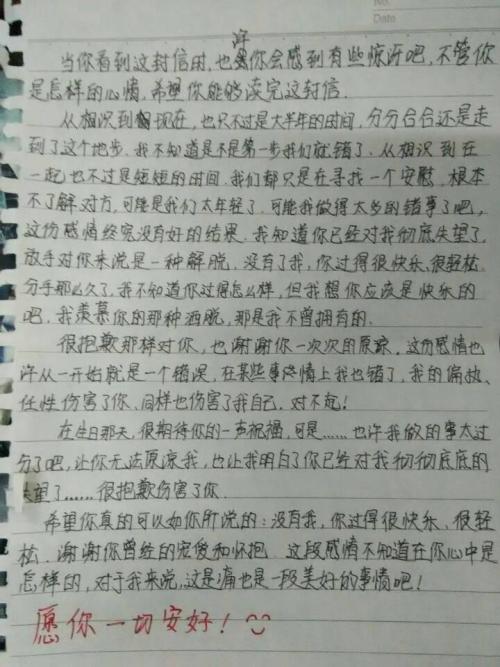 No.
Date
当你看到这封信时,也许你会感到有些惊讶吧,不管你
是怎样的心情,希望你能够读完这封信.
从相识到现在,也只不过是大半年的时间,分分合合还是走
到了这个地步.我不知道是不是第一步我们就错了.从相识到在
一起也不过是短短的时间.我们都只是在寻找一个安慰,根本
不了解对方,可能是我们太年轻了.可能我做得太多的错事了吧,
这伤感情终究没有好的结果.我知道你已经对我彻底失望了,
放手对你来说是一种解脱,没有了我,你过得很快乐,很轻松.
分手那么久了,我不知道你过得怎么样,但我想你应该是快乐的
吧,我羡慕你的那种洒脱,那是我不曾拥有的.
很抱歉那样对你,也谢谢你一次次的原谅,这伤感情也
许从一开始就是一个错误,在某些事情上我也错了,我的偏执、
任性伤害了你、同样也伤害了我自己.对不起!
在生日那天,很期待你的一声祝福,可是……也许我做的事太过
分了吧,让你无法原谅我,也让我明白了你已经对我彻彻底底的
失望了……很抱歉伤害了你.
希望你真的可以如你所说的:没有我,你过得很快乐、很轻
松.谢谢你曾经的宠爱和怀抱.这段感情不知道在你心中是
怎样的,对于我来说,这是痛也是一段美好的事情吧!
愿你一切安好!